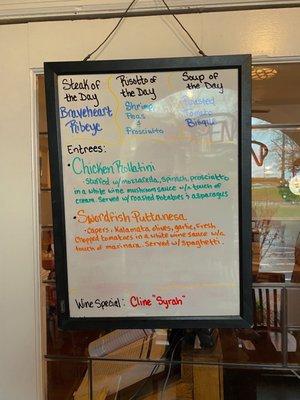 Steak of the Day
Braveheart
Ribeye
Risotto of the Day
Shrimp
Peas
&
Prosciutto
Soup of the Day
Roasted
Tomato
Bisque
Entrees:
• Chicken Rollatini
- Stuffed w/ mozzarella, spinach, prosciutto
in a white wine mushroom sauce w/a touch of
cream. Served w/ roasted potatoes & asparagus
• Swordfish Puttanesca
- Capers, Kalamata olives, garlic, Fresh
Chopped tomatoes in a white wine sauce w/a
touch of marinara. Served w/ spaghetti.
Wine Special: Cline "Syrah"